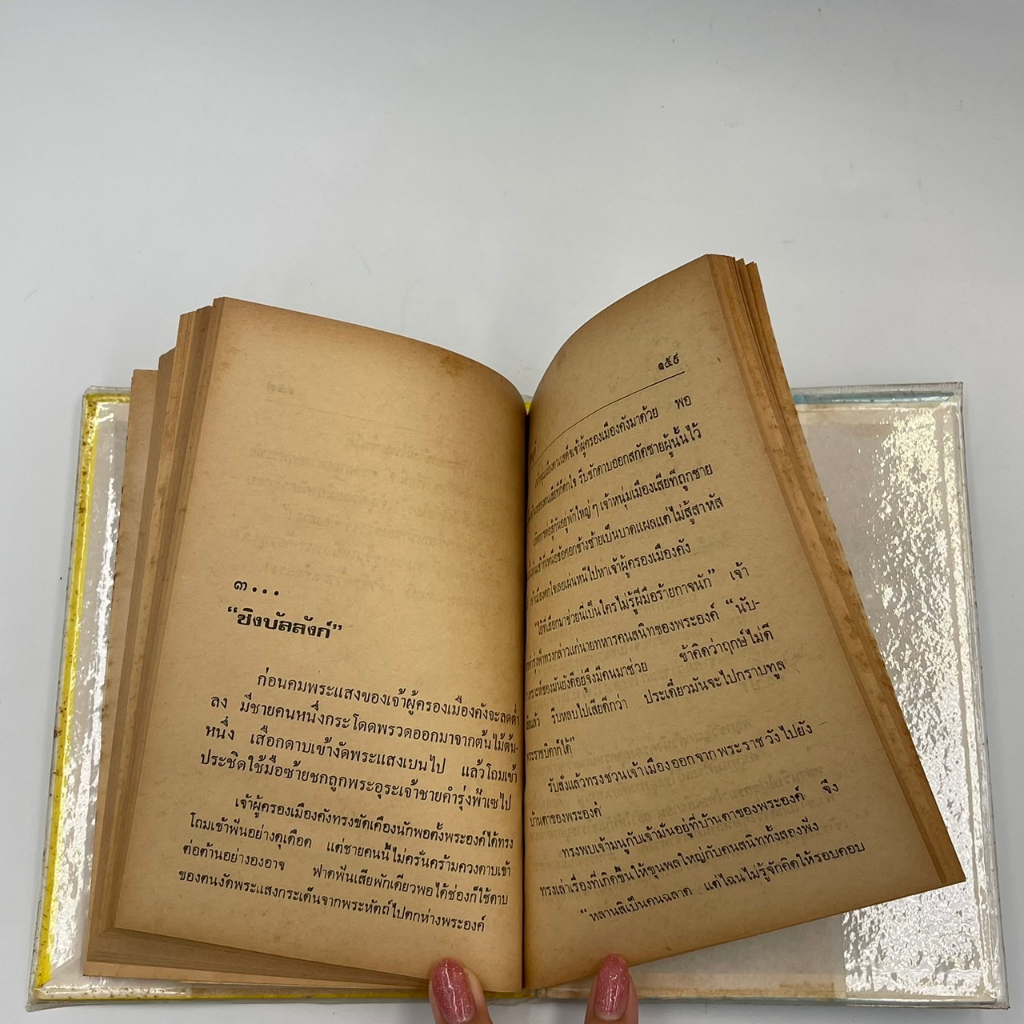 ๓...
“ชิงบัลลังก์”
ก่อนคมพระแสงของเจ้าผู้ครองเมืองคังจะลดต่ำ
ลง มีชายคนหนึ่งกระโดดพรวดออกมาจากต้นไม้ต้น-
หนึ่ง เสือกดาบเข้างัดพระแสงเบนไป แล้วโถมเข้า
ประชิดใช้มือซ้ายชกถูกพระอุระเจ้าชายคำรุ่งฟ้าเซไป
เจ้าผู้ครองเมืองคังทรงขัดเคืองนักพอตั้งพระองค์ได้ทรง
โถมเข้าฟันอย่างดุเดือด แต่ชายคนนี้ไม่ครั่นคร้ามควงดาบเข้า
ต่อต้านอย่างองอาจ ฟาดฟันเสียพักเดียวพอได้ช่องก็ใช้ดาบ
ของตนงัดพระแสงกระเด็นจากพระหัตถ์ไปตกห่างพระองค์
๑๕๙
เจ้าผู้ครองเมืองคังมาด้วย พอ
รีบชักดาบออกสกัดชายผู้นั้นไว้
สู้กันอยู่พักใหญ่ๆ เจ้าหนุ่มเมืองเสียทีถูกชาย
ข้างซ้ายเป็นบาดแผลแต่ไม่สู้สาหัส
เผ่นหนีไปหาเจ้าผู้ครองเมืองคัง
มาช่วยนี่เป็นใครไม่รู้ฝีมือร้ายกาจนัก” เจ้า
ทรงกล่าวแก่นายทหารคนสนิทของพระองค์ “นับ-
ของมันยังดีอยู่จึงมีคนมาช่วย ข้าคิดว่าฤกษ์ไม่ดี
แล้ว รีบหลบไปเสียดีกว่า ประเดี๋ยวมันจะไปกราบทูล
พระราชบิดาก็ได้”
รับสั่งแล้วทรงชวนเจ้าเมืองออกจากพระราชวังไปยัง
บ้านตาของพระองค์
ทรงพบเจ้ามนูกับเจ้ามั่นอยู่ที่บ้านตาของพระองค์ จึง
ทรงเล่าเรื่องที่เกิดขึ้นให้ขุนพลใหญ่กับคนสนิททั้งสองฟัง
“หลานสิเป็นคนฉลาด แต่ไฉนไม่รู้จักคิดให้รอบคอบ